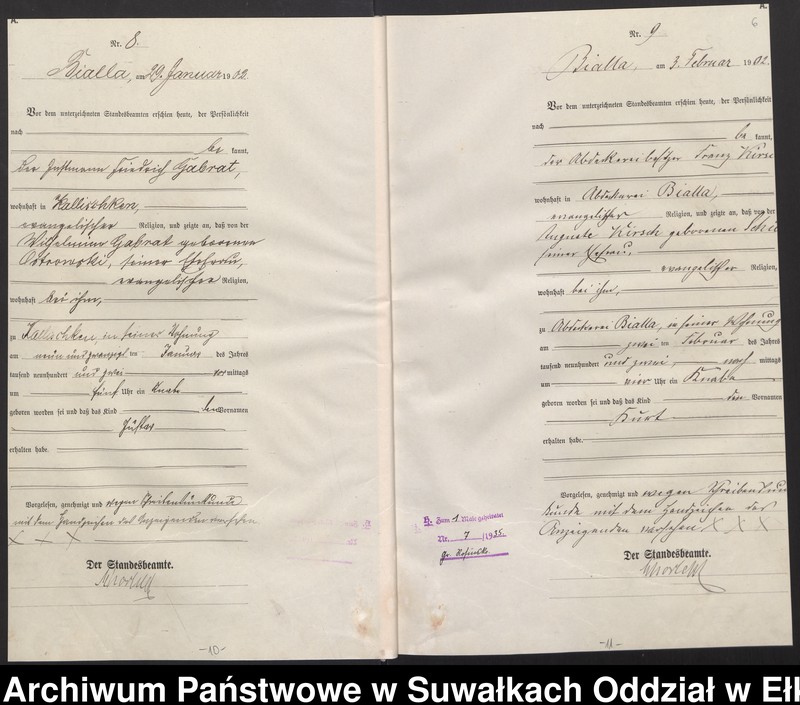 A.
Nr. 8.
Bialla, am 29. Januar 1902.
Vor dem unterzeichneten Standesbeamten erschien heute, der Persönlichkeit
nach
be kannt,
der Friedrich Gabrat,
wohnhaft in Kallischken,
evangelischer Religion, und zeigte an, daß von der
Wilhelmine Gabrat geborenen
Ostrowski, seiner Ehefrau,
evangelischer Religion,
wohnhaft bei ihm,
zu Kallischken, in seiner Wohnung
am neun und zwanzigsten Januar des Jahres
tausend neunhundert und zwei vormittags
um fünf Uhr ein Knabe
geboren worden sei und daß das Kind den Vornamen
Gustav
erhalten habe.
Vorgelesen, genehmigt und wegen Schreibensunkunde
mit dem Handzeichen des Anzeigenden versehen
X X X
Der Standesbeamte.
-10-
A.
6
Nr. 9
Bialla, am 3. Februar 1902.
Vor dem unterzeichneten Standesbeamten erschien heute, der Persönlichkeit
nach
be kannt,
der Abdeckereibesitzer Franz Kirsc
wohnhaft in Abdeckerei Bialla,
evangelischer Religion, und zeigte an, daß von der
Auguste Kirsch geborenen
seiner Ehefrau,
evangelischer Religion,
wohnhaft bei ihm,
zu Abdeckerei Bialla, in seiner Wohnung
am zwei ten Februar des Jahres
tausend neunhundert und zwei, nach mittags
um vier Uhr ein Knabe
geboren worden sei und daß das Kind den Vornamen
Kurt
erhalten habe.
Vorgelesen, genehmigt und wegen Schreibensun
kunde mit dem Handzeichen des
Anzeigenden versehen X X X
Der Standesbeamte.
-11-
Zum 1. Male
Nr. 7 /1935.
Archiwum Państwowe w Suwałkach Oddział w Ełk